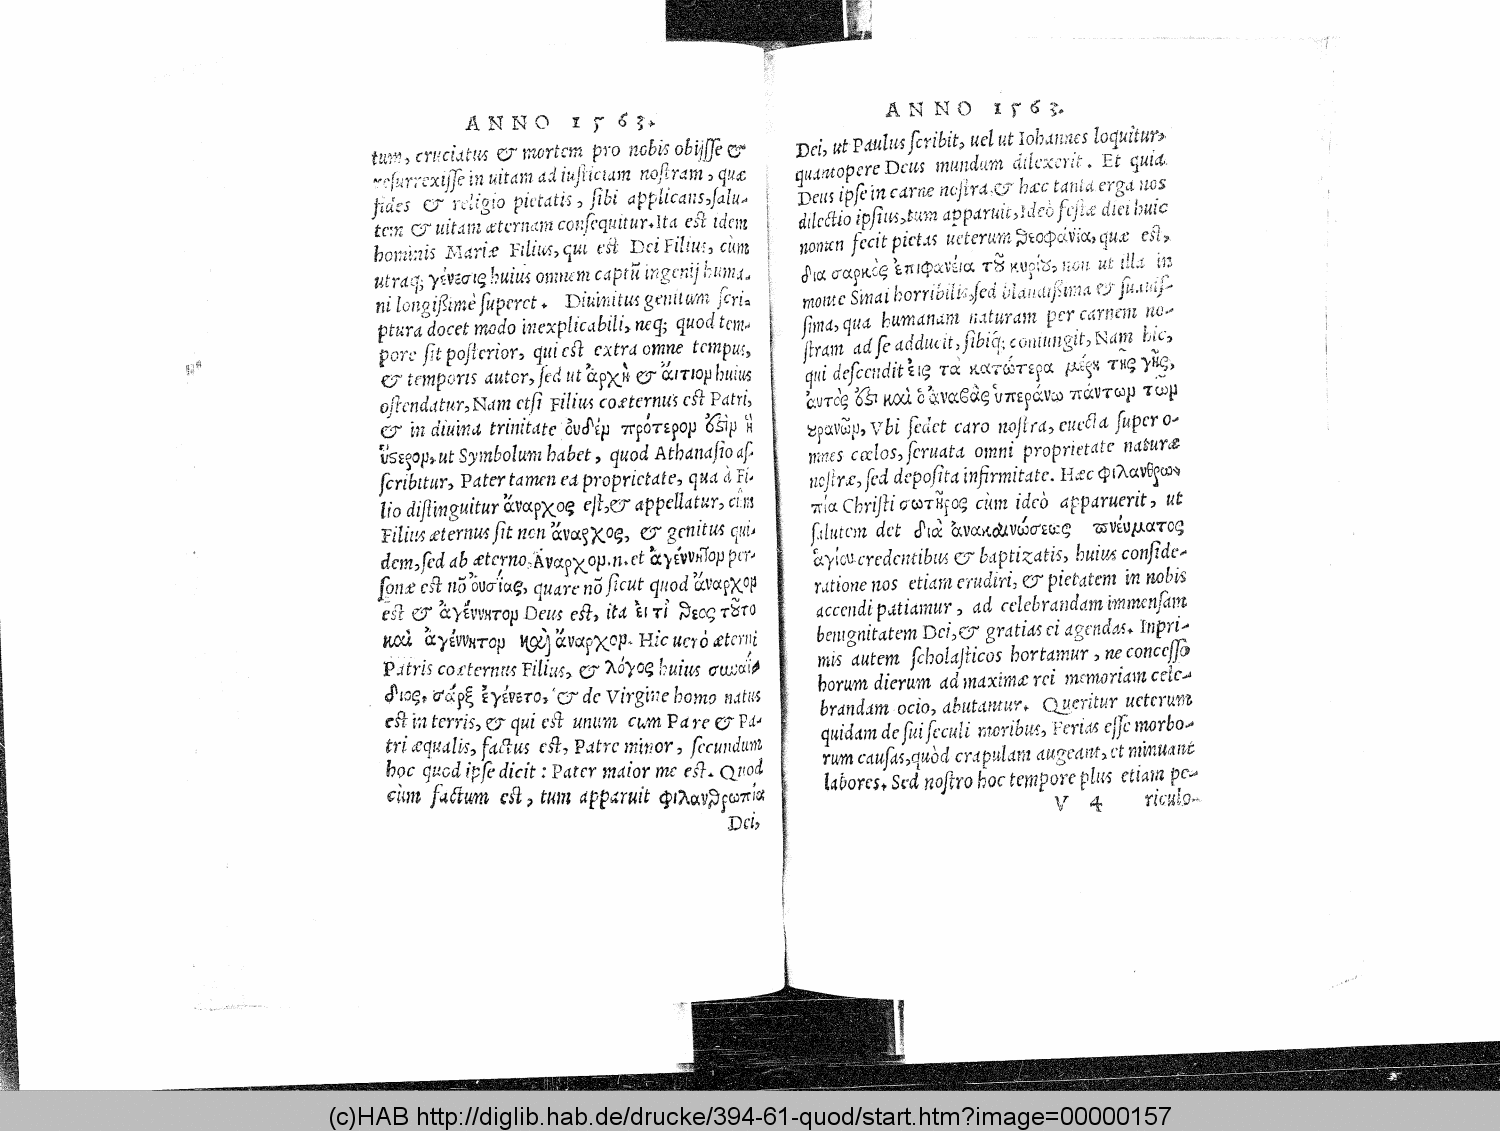 ANNO 1563.
tum, cruciatus & mortem pro nobis obijsse &
resurrexisse in uitam ad iusticiam nostram, quæ
fides & religio pietatis, sibi applicans, salu-
tem & uitam æternam consequitur. Ita est idem
hominis Mariæ Filius, qui est Dei Filius, cùm
utraq; γένεσις huius omnem captũ ingenij huma-
ni longißimè superet. Diuinitus genitum scri-
ptura docet modo inexplicabili, neq; quod tem-
pore sit posterior, qui est extra omne tempus,
& temporis autor, sed ut ἀρχὴ & ἄιτιομ huius
ostendatur, Nam etsi Filius coæternus est Patri,
& in diuina trinitate ὀυδέμ πρότερομ ȣ̓δὲμ ἢ
ὕϛερομ, ut Symbolum habet, quod Athanasio as-
scribitur, Pater tamen ea proprietate, qua à Fi-
lio distinguitur ἄναρχος est, & appellatur, cùm
Filius æternus sit non ἄναρχος, & genitus qui-
dem, sed ab æterno. Ἄναρχομ.n. et ἀγέννητομ per-
sonæ est nõ ὀυσίας, quare nõ sicut quod ἄναρχομ
est & ἀγέννητομ Deus est, ita ἐι τὶ θεος τȣ͂το
καὶ ἀγέννητομ καὶ ἄναρχομ. Hic uerò æterni
Patris coæternus Filius, & λόγος huius
διος, σάρξ ἐγένετο, & de Virgine homo natus
est in terris, & qui est unum cum Patre & Pa-
tri æqualis, factus est, Patre minor, secundum
hoc quod ipse dicit: Pater maior me est. Quod
cùm factum est, tum apparuit φιλανθρωπία
Dei,
ANNO 1563.
Dei, ut Paulus scribit, uel ut Iohannes loquitur,
quantopere Deus mundum dilexerit. Et quia
Deus ipse in carne nostra, & hæc tanta erga nos
dilectio ipsius, tum apparuit, Ideò festæ diei huic
nomen fecit pietas ueterum θεοφάνια, quæ est,
δια σαρκὸς ἐπιφανέια τȣ͂ κυρίȣ, non ut illa in
monte Sinai horribilis, sed blandißima & suauis-
sima, qua humanam naturam per carnem no-
stram ad se adducit, sibiq; coniungit, Nam hic,
qui descendit ἐις τὰ κατώτερα μέρη τῆς γῆς,
ἀυτὸς ȣ̓͂ϛι καὶ ὁ ἀναβὰς ὑπεράνω πάντωμ τῶμ
ȣ̓ρανῶμ, Vbi sedet caro nostra, euecta super o-
mnes cœlos, seruata omni proprietate naturæ
nostræ, sed deposita infirmitate. Hæc φιλανθρω-
πία Christi σωτῆρος cùm ideò apparuerit, ut
salutem det διὰ ἀνακαινώσεως πνέυματος
ἁγίου credentibus & baptizatis, huius conside-
ratione nos etiam erudiri, & pietatem in nobis
accendi patiamur, ad celebrandam immensam
benignitatem Dei, & gratias ei agendas. Inpri-
mis autem scholasticos hortamur, ne concesso
horum dierum ad maximæ rei memoriam cele-
brandam ocio, abutantur. Queritur ueterum
quidam de sui seculi moribus, Ferias esse morbo-
rum causas, quòd crapulam augeant, et minuant
labores. Sed nostro hoc tempore plus etiam pe-
V 4 riculo-
(c)HAB http://diglib.hab.de/drucke/394-61-quod/start.htm?image=00000157